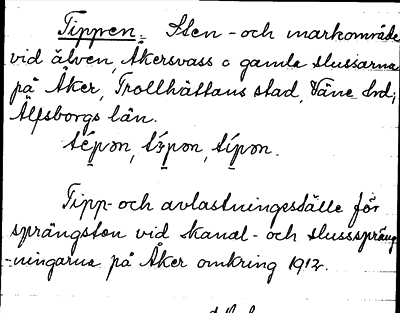 Tippen. Sten- och markområde
vid älven, Åkersvass o gamla slussarna
på Åker, Trollhättans stad, Väne hd;
Älfsborgs län.
pən, pən, pən.
Tipp- och avlastningsställe för
sprängsten vid kanal- och slussspräng
-ningarna på Åker omkring 1912.